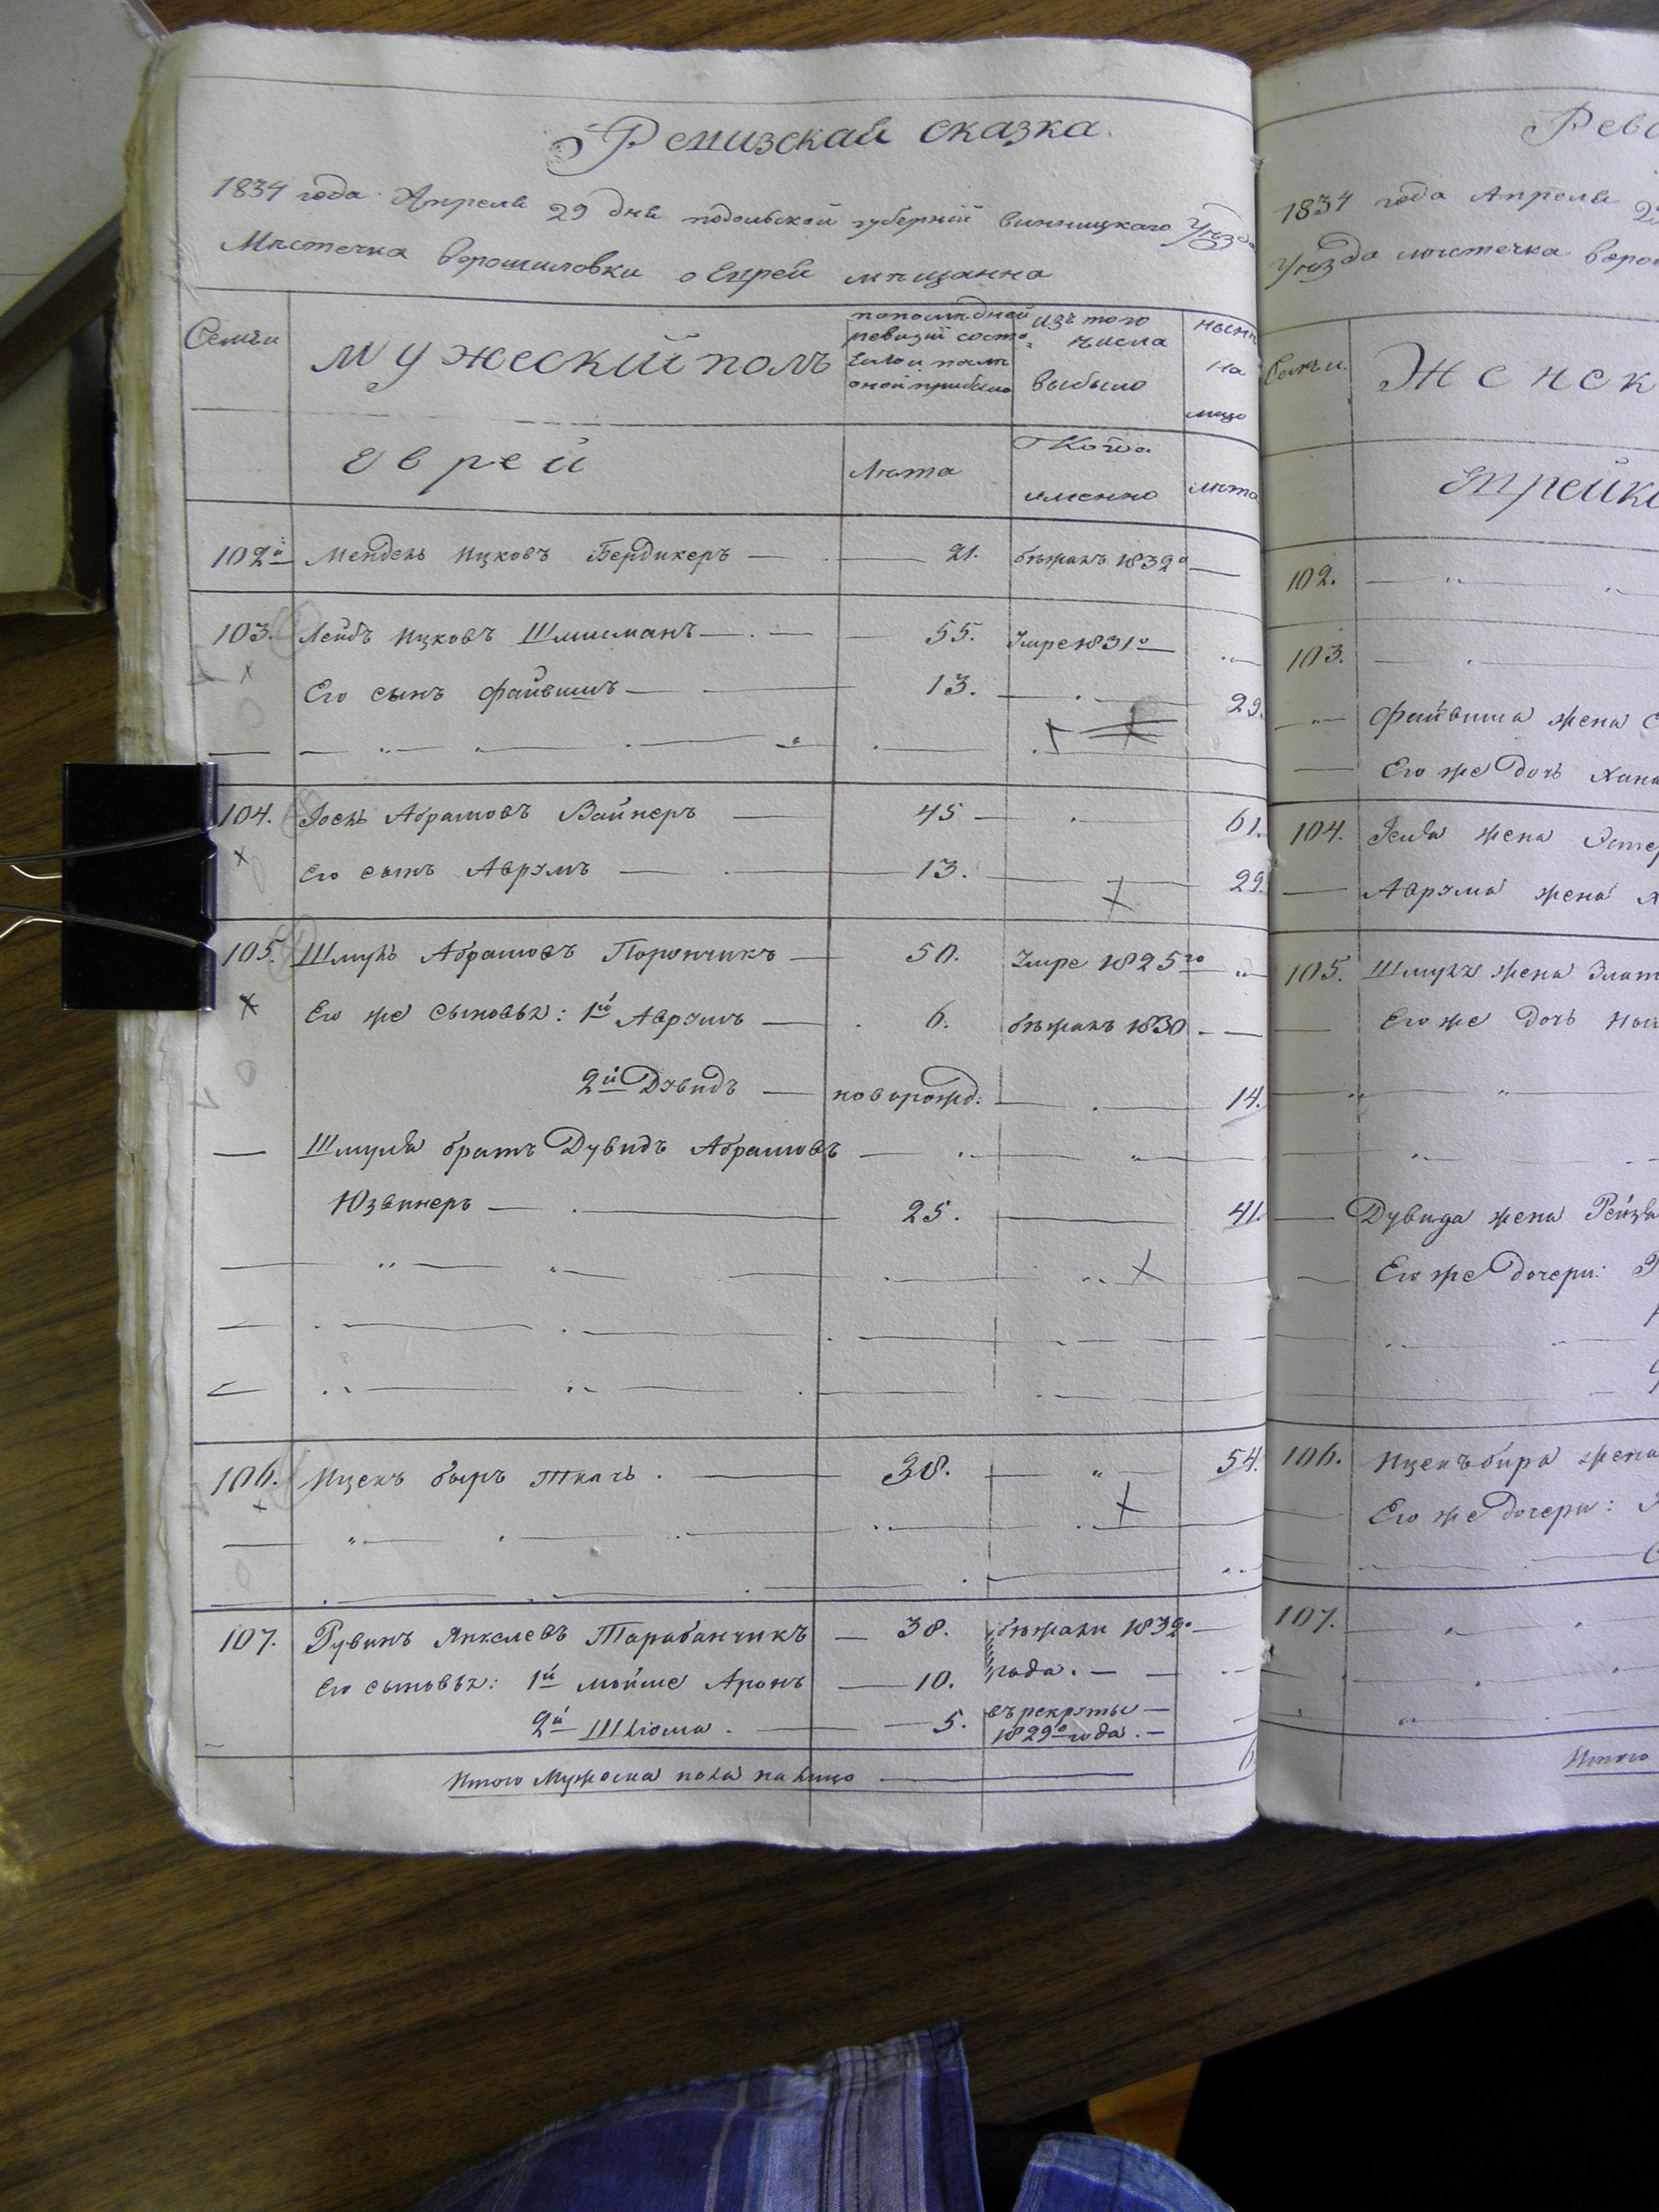 Ревизская сказка.
1834 года Апреля 29 дня подольской губернии винницкаго Уезда
Местечка Ворошиловки о Еврей мещанна
Семьи
мужеский полъ
по последней
ревизии состо
яло и после
оной прибыло
изъ того
числа
выбыло
ныне
на
лицо
еврей
лета
Когда
именно
лета
102й Мендель Ицковъ Бердикеръ — 21. бежалъ 1832о
103. Лейбъ Ицковъ Шлисманъ — 55. Умре 1831о
Его сынъ Файвишъ — 13. 29.
104. Іось Абрамовъ Вайнеръ — 45 — 61.
его сынъ Аврумъ — 13. 29.
105. Шмуль Абрамовъ Порончикъ — 50. Умре 1825го
Его же сыновья: 1й Аврумъ — 6. бежалъ 1830 —
2й Дувидъ — новорожд: 14.
Шмуля братъ Дувидъ Абрамовъ
Юзвинеръ — 25. 41.
106. Ицекъ быръ Ткачъ. — 38. 54.
107. Рувинъ Янкелевъ Тарабанчикъ — 38. бежали 1832о
Его сыновья: 1й Мойше Аронъ — 10. года. —
2й Шліома. — 5. въ рекруты —
1829о года. —
Итого Мужеска пола на лицо — 6
Рев
1834 года Апреля 29
Уезда местечка Воро
Семьи.
Женск
Еврейк
102.
103.
Файвиша жена
Его же дочь Хана
104. Іося жена Эстер
Аврума жена Х
105. Шмуля жена Злат
Его же дочь
Дувида жена Рейзя
Его же дочери:
106. Ицекъ бира жена
Его же дочери:
107.
Итого